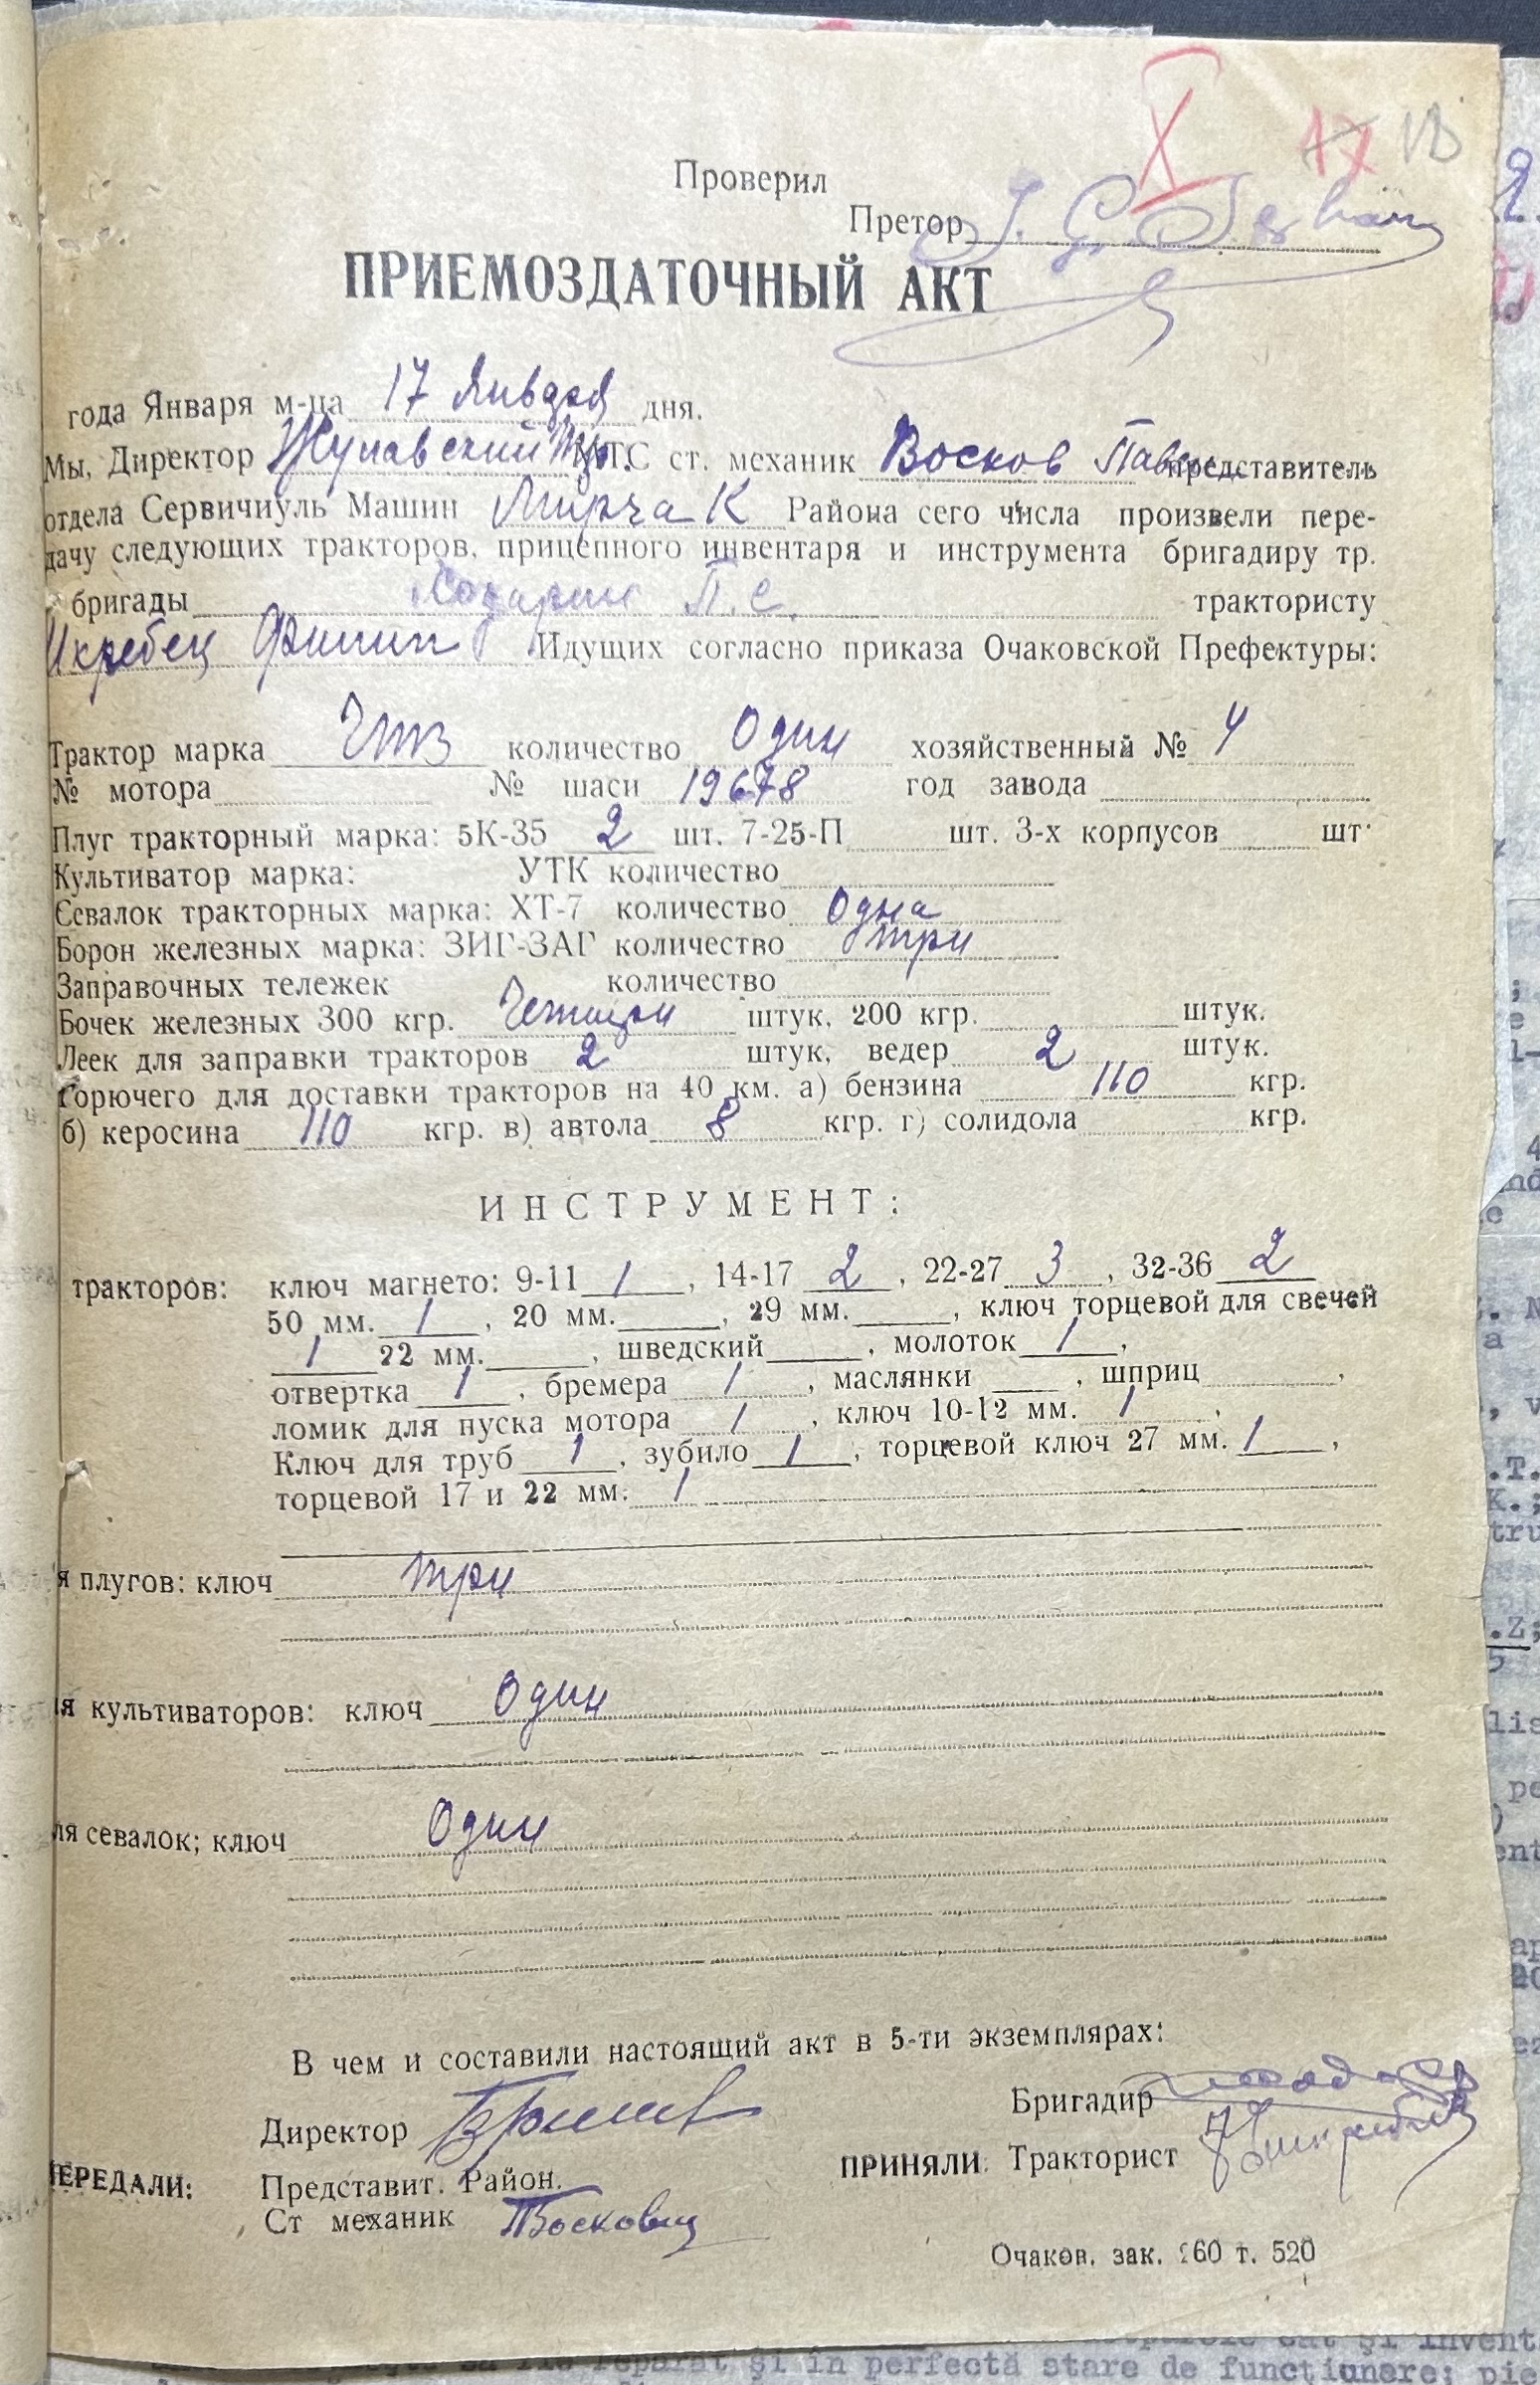 X 17 18
Проверил
Претор
ПРИЕМОЗДАТОЧНЫЙ АКТ
года Января м-ца 17 Января дня.
Мы, Директор МТС ст. механик Восков Павел представитель
отдела Сервичиуль Машин Мирча К Района сего числа произвели пере-
дачу следующих тракторов, прицепного инвентаря и инструмента бригадиру тр.
бригады П. С. трактористу
Филипп Идущих согласно приказа Очаковской Префектуры:
Трактор марка ЧТЗ количество Один хозяйственный № 4
№ мотора № шаси 19678 год завода
Плуг тракторный марка: 5К-35 2 шт. 7-25-П шт. 3-х корпусов шт.
Культиватор марка: УТК количество
Севалок тракторных марка: ХТ-7 количество Одна
Борон железных марка: ЗИГ-ЗАГ количество три
Заправочных тележек количество
Бочек железных 300 кгр. штук, 200 кгр. штук.
Леек для заправки тракторов 2 штук, ведер 2 штук.
Горючего для доставки тракторов на 40 км. а) бензина 110 кгр.
б) керосина 110 кгр. в) автола 8 кгр. г) солидола кгр.
ИНСТРУМЕНТ:
тракторов: ключ магнето: 9-11 1, 14-17 2, 22-27 3, 32-36 2
50 мм. 1, 20 мм. , 29 мм. , ключ торцевой для свечей
1 22 мм. , шведский , молоток 1,
отвертка 1, бремера 1, маслянки , шприц ,
ломик для пуска мотора 1, ключ 10-12 мм. 1,
Ключ для труб 1, зубило 1, торцевой ключ 27 мм. 1,
торцевой 17 и 22 мм. 1
я плугов: ключ три
ля культиваторов: ключ Один
ля севалок; ключ Один
В чем и составили настоящий акт в 5-ти экземплярах:
Директор
Бригадир
ПЕРЕДАЛИ: Представит. Район.
ПРИНЯЛИ: Тракторист
Ст механик
Очаков, зак. 260 т. 520